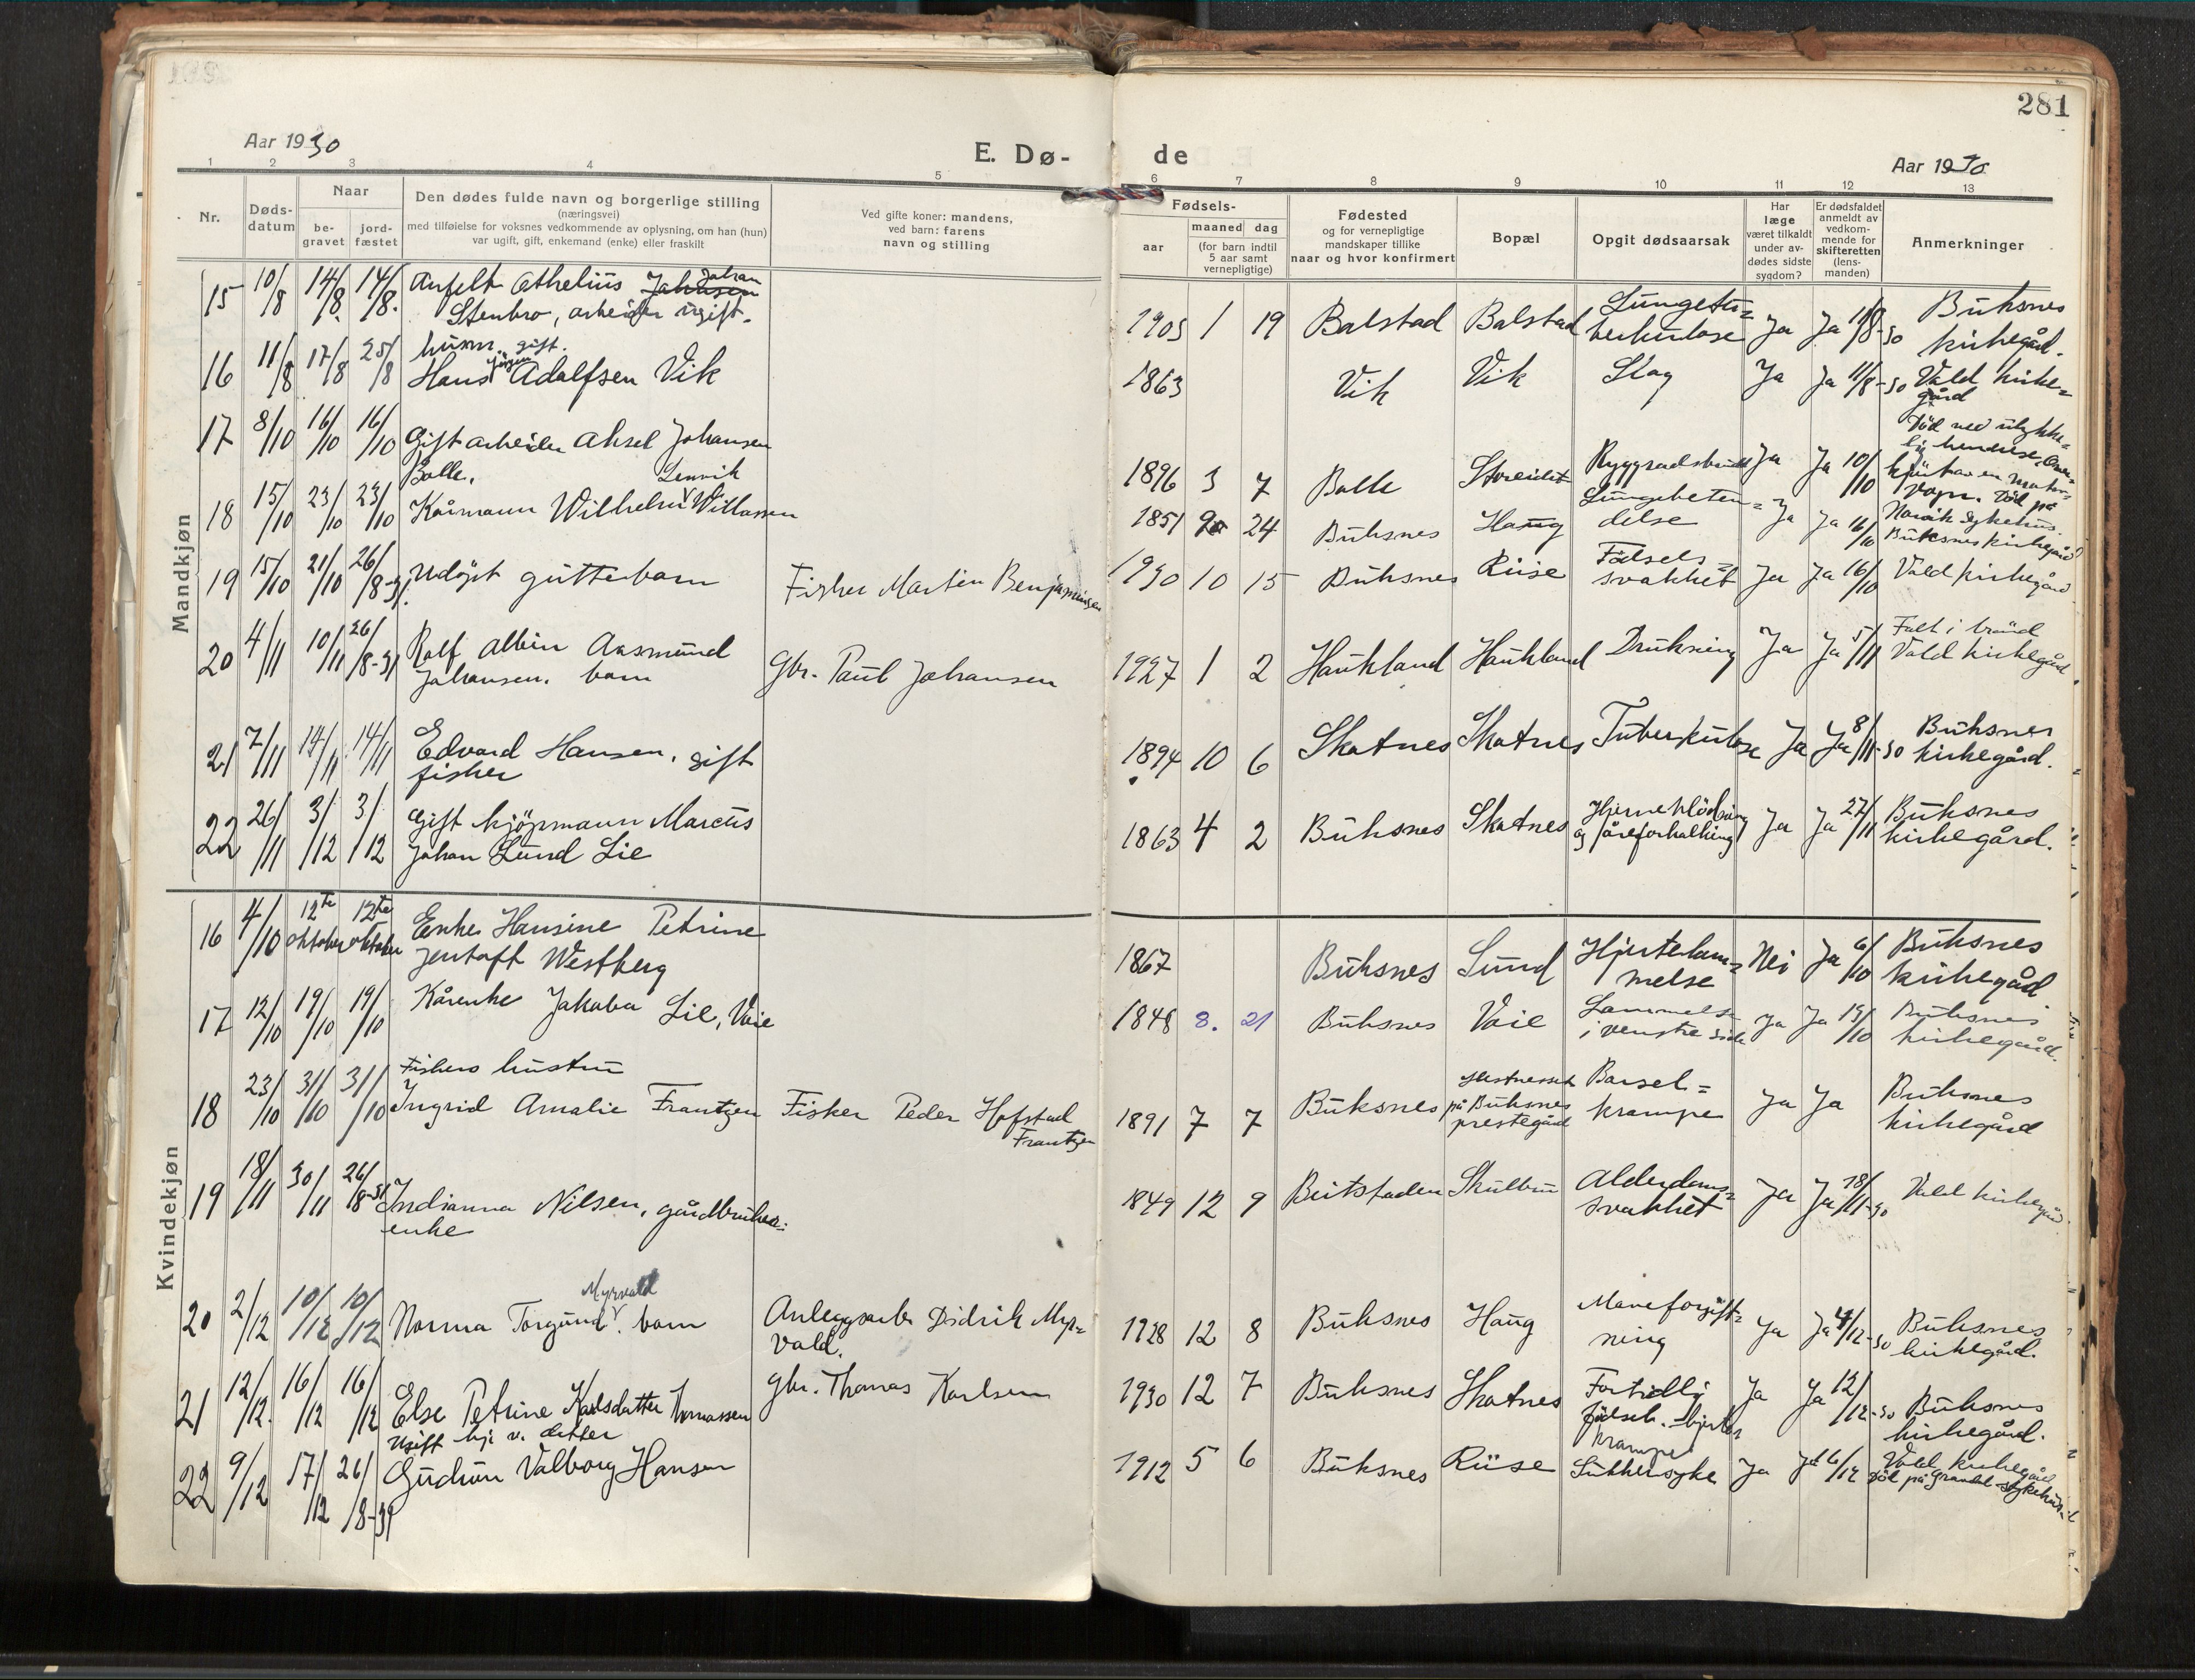 281
Aar 1930
E. Dø-
de
Aar 1930
1 2 3 4 5 6 7 8 9 10 11 12 13
Nr.
Døds-
datum
Naar
be-
gravet
jord-
fæstet
Den dødes fulde navn og borgerlige stilling
(næringsvei)
med tilføielse for voksnes vedkommende av oplysning, om han (hun)
var ugift, gift, enkemand (enke) eller fraskilt
Ved gifte koner: mandens,
ved barn: farens
navn og stilling
Fødsels-
aar
maaned dag
(for barn indtil
5 aar samt
vernepligtige)
Fødested
og for vernepligtige
mandskaper tillike
naar og hvor konfirmert
Bopæl
Opgit dødsaarsak
Har
læge
været tilkaldt
under av-
dødes sidste
sygdom?
Er dødsfaldet
anmeldt av
vedkom-
mende for
skifteretten
(lens-
manden)
Anmerkninger
Mandkjøn
15 10/8 14/8. 14/8. Anfelt Athelius Johan
Stenbro, arbeider ugift.
1905 1 19 Balstad Balstad Lungetu-
berkulose Ja Ja 11/8-30 Buksnes
kirkegård.
16 11/8 17/8 25/8 husm. gift.
Hans Jörgen Adolfsen Vik
1863 Vik Vik Slag Ja Ja 11/8-30 Vold kirke-
gård
17 8/10 16/10 16/10 Gift arbeider Aksel Johansen
Bolle.
1896 3 7 Bolle Storeidet Ryggradsbrudd Ja Ja 10/10
Död ved ulykke-
lig hendelse,
Död på
Narvik sykehus.
18 15/10 23/10 23/10 Kårmann Wilhelm Lenvik Willassen
1851 9 24 Buksnes Haug Lungebeten-
delse Ja Ja 16/10 Buksnes kirkegård
19 15/10 21/10 26/8-31. Udöpt guttebarn
Fisker Martin Benjaminsen
1930 10 15 Buksnes Rise Födsels-
svakhet Ja Ja 16/10 Vold kirkegård
20 4/11 10/11 26/8-31 Rolf Albin Aasmund
Johansen. barn
Gbr. Paul Johansen
1927 1 2 Haukland Haukland Drukning Ja Ja 5/11 Falt i brönd
Vold kirkegård.
21 7/11 14/11 14/11 Edvard Hansen, gift
fisker
1894 10 6 Skotnes Skotnes Tuberkulose Ja Ja 8/11-30 Buksnes
kirkegård.
22 26/11 3/12 3/12 Gift kjöpmann Marcus
Johan Lund Lie
1863 4 2 Buksnes Skotnes Hjerneblödning
og åreforkalkning Ja Ja 27/11 Buksnes
kirkegård.
Kvindekjøn
16 4/10 12te oktober 12te oktober Enke Hansine Petrine
Jentoft Westberg
1867 Buksnes Sund Hjertelam-
melse Nei Ja 6/10 Buksnes
kirkegård
17 12/10 19/10 19/10 Kårenke Jakoba Lie, Voie
1848 8. 21 Buksnes Voie Lammelse
i venstre side Ja Ja 15/10 Buksnes
kirkegård.
18 23/10 31/10 31/10 Fiskers hustru
Ingrid Amalie Frantzen
Fisker Peder Hofstad
Frantzen
1891 7 7 Buksnes
på Buksnes
prestegård
Barsel-
krampe Ja Ja Buksnes
kirkegård
19 18/11 30/11 26/8-31 Indianna Nilsen, gårdbruker-
enke
1849 12 9 Beitstaden Skulbru Alderdoms-
svakhet Ja Ja 18/11-30 Vold kirkegård
20 2/12 10/12 10/12 Norma Torgund Myrvold. barn
Anleggsarb. Didrik Myr-
vold.
1928 12 8 Buksnes Haug Maveforgift-
ning Ja Ja 4/12-30 Buksnes
kirkegård.
21 12/12. 16/12 16/12 Else Petrine Karlsdatter Thomassen
Gbr. Thomas Karlsen
1930 12 7 Buksnes Skotnes Fortidlig
födsel. hjerte-
krampe Ja Ja 12/12-30 Buksnes
kirkegård.
22 9/12 17/12 26/8-31 Ugift hj. v. datter
Gudrun Valborg Hansen
1912 5 6 Buksnes Rise Sukkersyke Ja Ja 16/12 Vold kirkegård
Död på Gravdal sykehus.